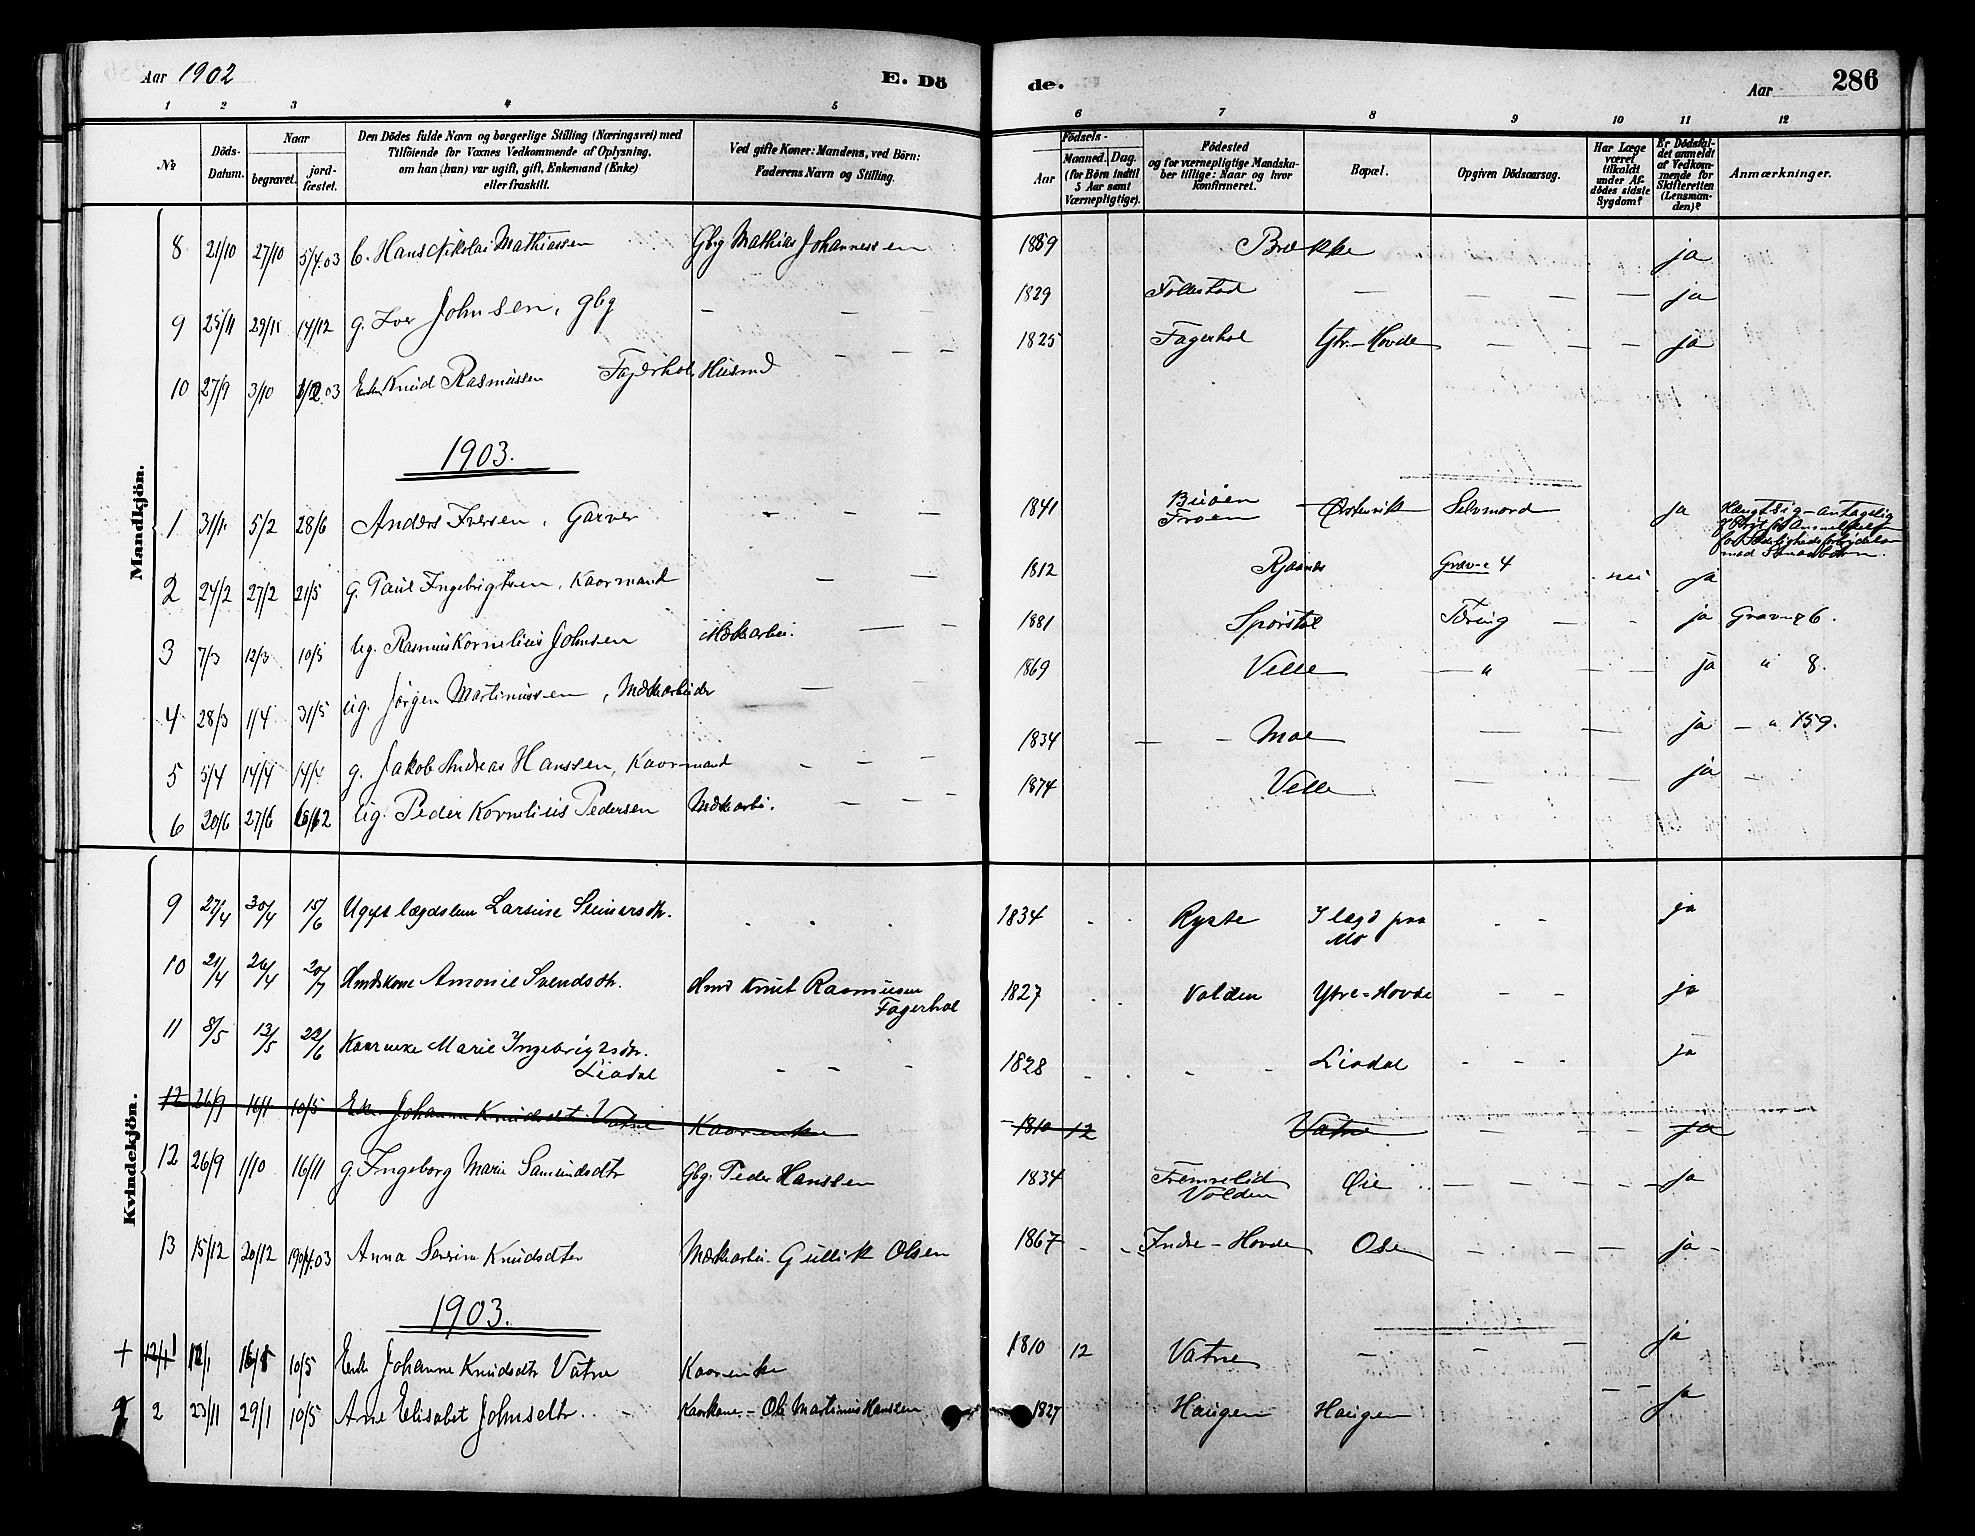 Aar 1902
E. Dö
de.
Aar
286
1 2 3 4 5 6 7 8 9 10 11 12
№
Döds-Datum.
Naar
begravet.
jord-fæstet.
Den Dödes fulde Navn og borgerlige Stilling (Næringsvei) med
Tilföiende for Voxnes Vedkommende af Oplysning,
om han (hun) var ugift, gift, Enkemand (Enke)
eller fraskilt.
Ved gifte Koner: Mandens, ved Börn:
Faderens Navn og Stilling.
Födsels-
Aar
Maaned. Dag.
(for Börn indtil
5 Aar samt
Værnepligtige).
Födested
og for værnepligtige Mandska-
ber tillige: Naar og hvor
konfirmeret.
Bopæl.
Opgiven Dödsaarsag.
Har Læge
været
tilkaldt
under Af-
dödes sidste
Sygdom?
Er Dödsfal-
det anmeldt
af Vedkom-
mende for
Skifteretten
(Lensman-
den)?
Anmærkninger.
Mandkjön.
8 21/10 27/10 5/4.03 C. Hans Nikolai Mathiassen Gbrg Mathias Johannessen 1859 Brække ja
9 25/11 29/11 14/12 g. Iver Johnsen, gbg — — 1829 Follestad — — — — ja
10 27/9 3/10 Enkem Knud Rasmussen Fagerhol, Husmd — — — 1825 Fagerhol Ytr.-Hovde — — — ja
1903.
1 31/1 5/2 28/6 Anders Iversen, Garver 1841 Buøen Østervik Selvmord ja Hængt sig - antagelig
med Smaabørn.
2 24/2 27/2 21/5 g. Paul Ingebrigtsen, Kaarmand — — 1812 Rjaanes Grav 4 nei ja
3 7/3 12/3 10/5 ug. Rasmus Kornelius Johnsen Mdkarbei. — — 1881 Spørstøl Tæring - - ja Grav 6.
4 28/3 1/4 31/5 ug. Jørgen Martinussen, Mdkarbeider — — 1869 Velle — " — — ja " 8.
5 5/4 14/4 g. Jakob Andreas Hanssen, Kaarmand — — — 1834 — — Moe — — ja — " 159.
6 20/6 27/6 ug. Peder Kornelius Pedersen Mdkarbei. — — — 1874 Velle — — ja —
Kvindekjön.
9 27/4 30/4 15/6 Ugift lægdslem Larsine Steinarsdtr. 1834 Ryste I lægd paa
Mo - - ja
10 21/4 26/4 20/7 Hmdskone Amonie Svendsdtr. Hmd Knut Rasmussen
Fagerhol 1827 Volden Ytre-Hovde - - ja
11 8/5 13/5 22/6 Kaarenke Marie Ingebrigtsdtr.
Liadal - - - 1828 Liadal - - - ja
12 26/9 10/5 Enke Johanne Knudsdtr Vatne Kaarenke 1810 12 Vatne — — — ja
12 26/9 1/10 16/11 g. Ingeborg Marie Samundsdtr Gbg. Peder Hanssen 1834 Fremrelid
Volden Øie — — — — ja
13 15/12 20/12 Anna Severine Knudsdtr Mdkarbei. Gullik Olsen 1867 Indre-Hovde Ose — — — — ja
1903.
+ 1 12/1 10/5 Enke Johanne Knudsdtr Vatne Kaarenke 1810 12 Vatne — — ja
2 23/11 29/1 10/5 Ane Elisabet Johnsdtr. Kaarkone - Ole Martinus Hanssen 1827 Haugen Haugen — — ja